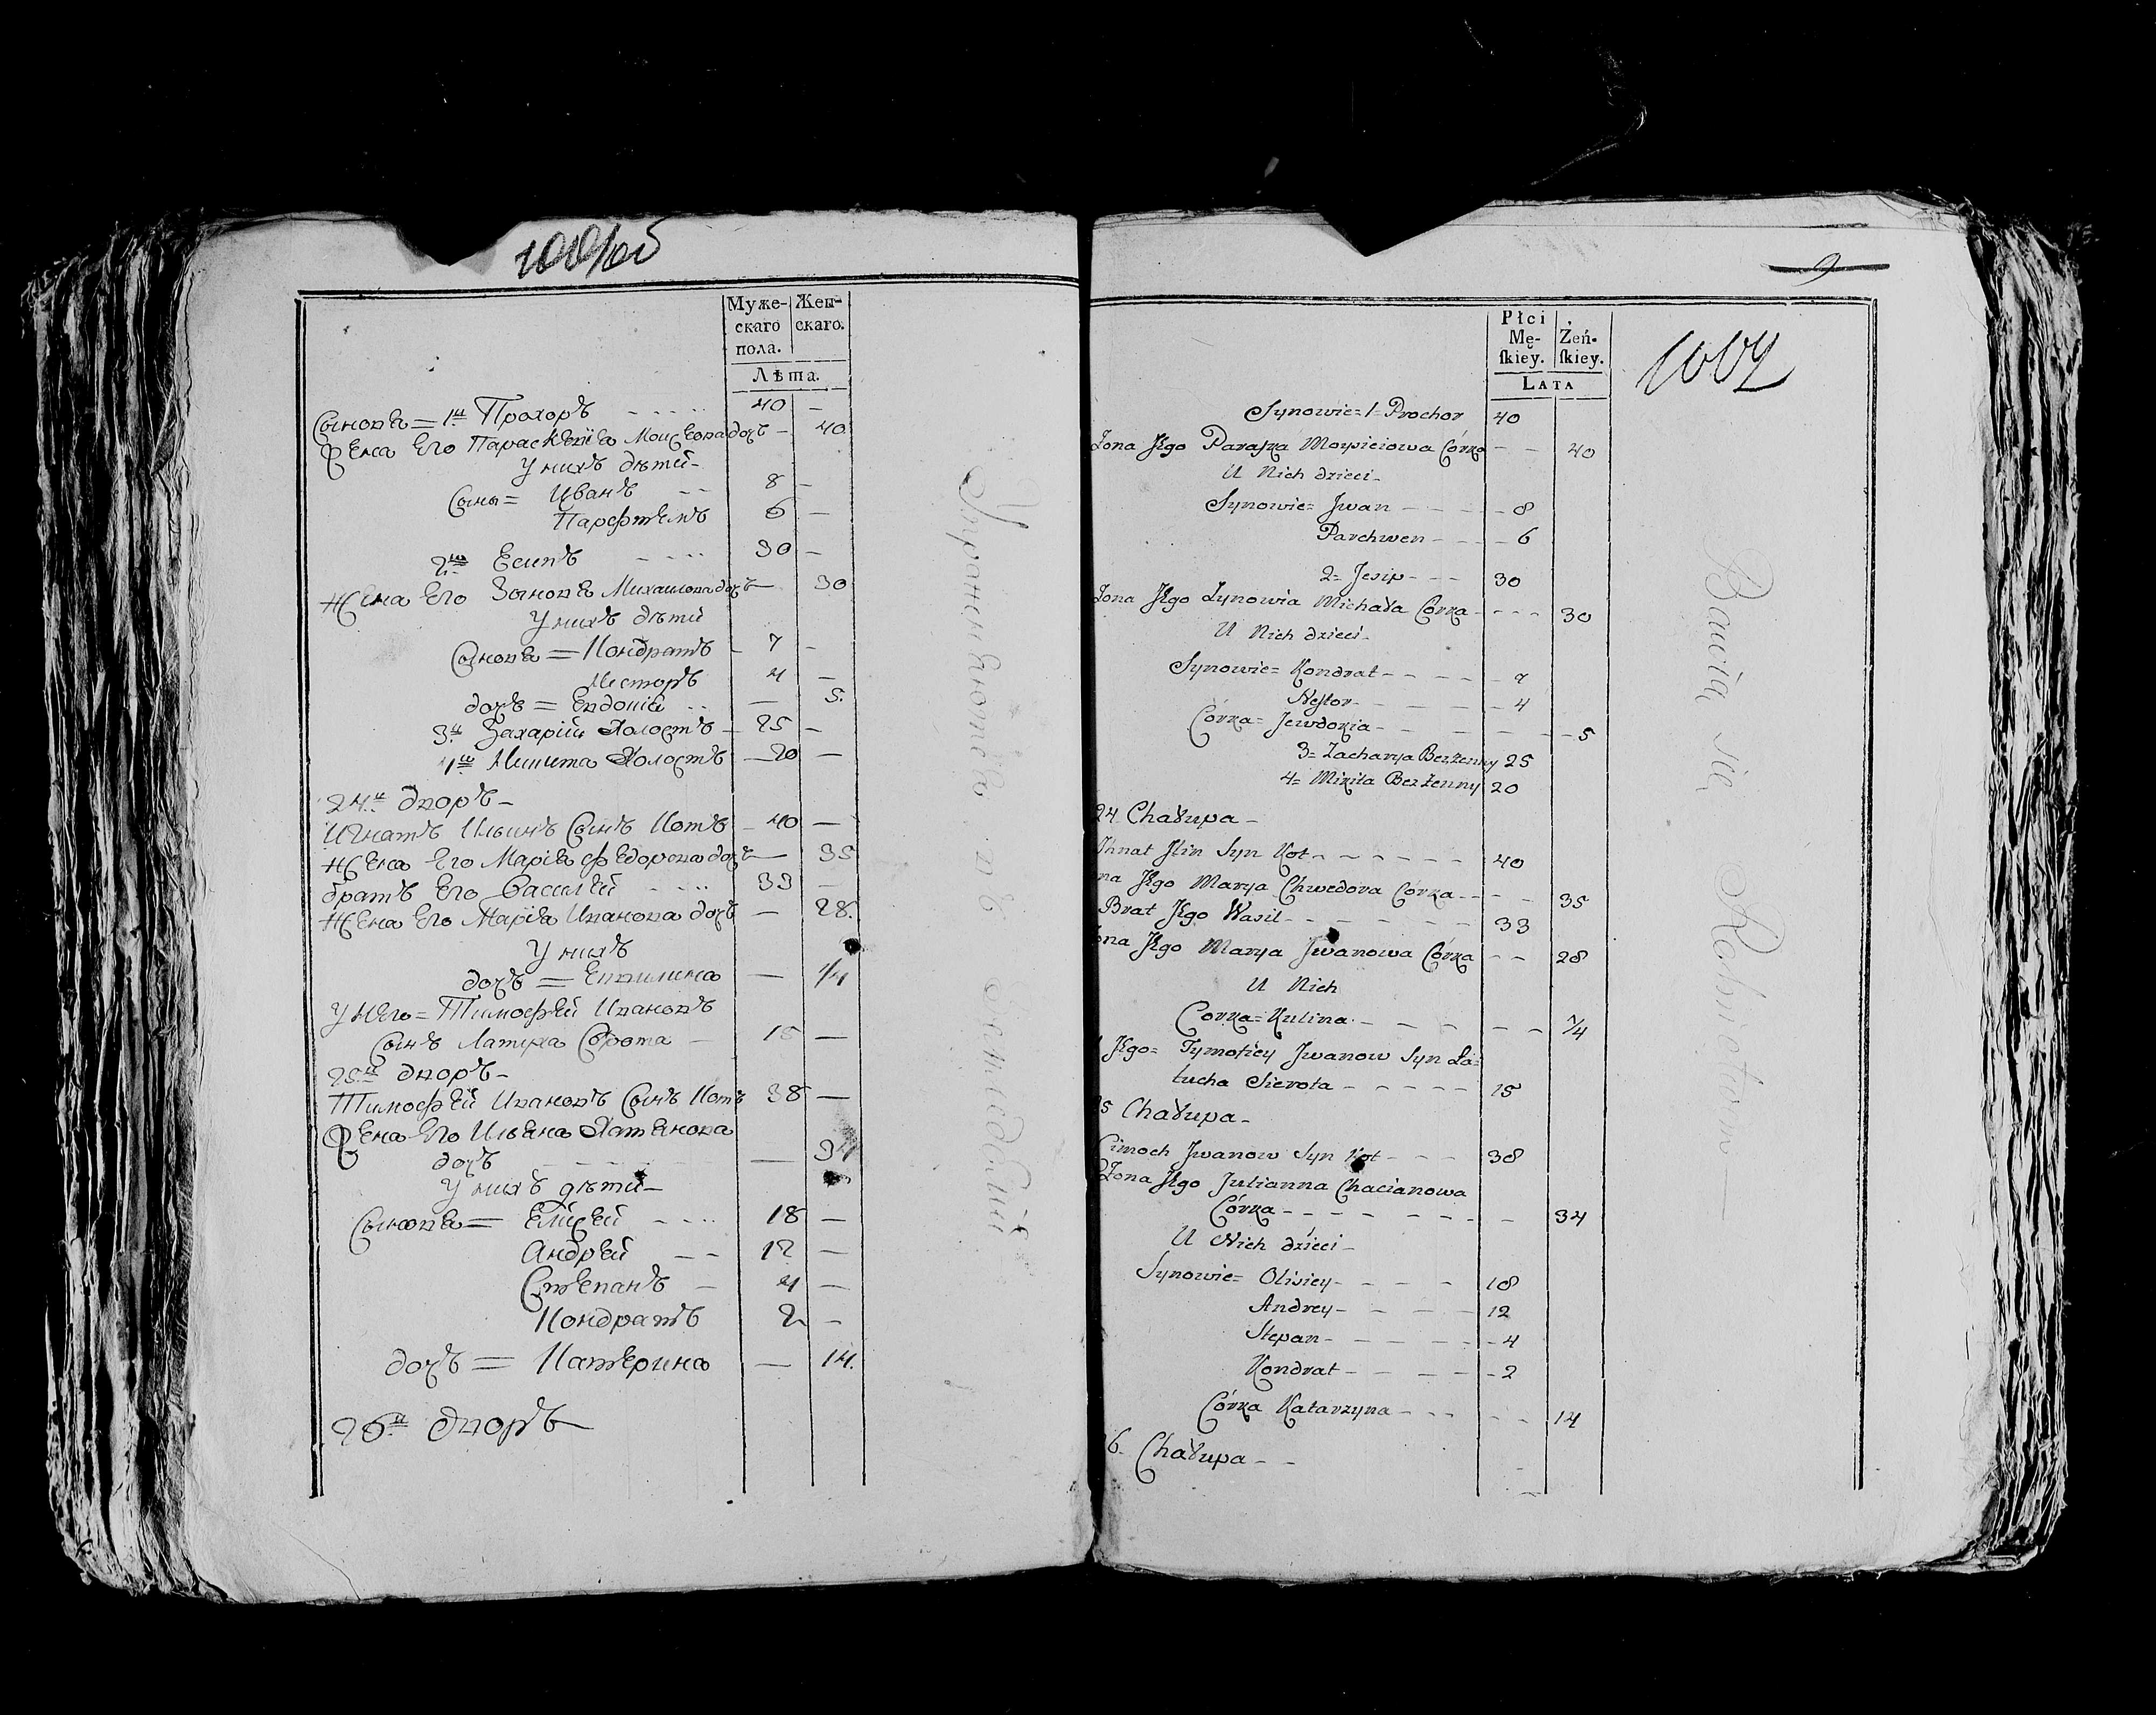 Муже-
скаго
пола.
Жен-
скаго.
Лѣта.
Сыновя = 1й Прохоръ - - - 40 -
Жена Его Параскевия Моисеова дочь - 40
У нихъ дѣти-
Сыны = Иванъ - - 8 -
Парфтенъ 6 -
2й Есипъ - - - 30 -
Жена Его Зыновя Михаилова дочь - 30
У нихъ дѣти
Сыновя = Кондратъ - 7 -
Несторъ 4 -
дочь = Евдокия - - - 5.
3й Захарій Холостъ - 25 -
4й Микита Холостъ - 20 -
24й дворъ-
Игнатъ Ильинъ Сынъ Котъ - 40 -
Жена Его Мария Федорова дочь - 35
братъ Его Василей - - - 33 -
Жена Его Мария Иванова дочь - 28.
У нихъ
дочь = - 1/4
У Него = Тимофей Ивановъ
Сынъ Латуха Сорота - 15 -
25й дворъ-
Тимофей Ивановъ Сынъ Котъ 38 -
Жена Его Ильяна Хатянова
дочь - 34
У нихъ дѣти-
Сыновя = Елисей - - - 18 -
Андрей - - 12 -
Степанъ - 4 -
Кондратъ 2 -
дочь = Катерина - 14.
26й дворъ
9
1004
Płci
Mę-
ſkiey.
Żeń-
ſkiey.
LATA
Synowie = 1 = Prochor 40
Żona Jego Paraska Moysieiowa Córka - - 40
U Nich dzieci-
Synowie = Jwan - - - - 8
Parchwen - - - - 6
2 = Jesip - - - 30
Żona Jego Zynowia Michała Córka - - - - 30
U Nich dzieci-
Synowie = Kondrat - - - - 7
Nestor - - - - 4
Córka = Jewdokia - - - - - 5
3 = Zacharya Bezżenny 25
4 = Mikita Bezżenny 20
24 Chałupa -
Jhnat Jlin Syn Kot - - - - - - 40
Jego Marya Chwedora Córka - - - - 35
Brat Jego Wasil - - - - - - 33
Jego Marya Jwanowa Córka - - 28
U Nich
Corka = Kulina - - - - - - 1/4
Jego = Tymofiey Jwanow Syn Ła=
tucha Sierota - - - - - 15
Chałupa -
Cimoch Jwanow Syn Kot - - - 38
Żona Jego Julianna Chacianowa
Córka - - - - - - - - 34
U Nich dzieci -
Synowie = Olisiey - - - - 18
Andrey - - - - 12
Stepan - - - - - 4
Kondrat - - - - - 2
Córka Katarzyna - - - - - 14
Chałupa - -